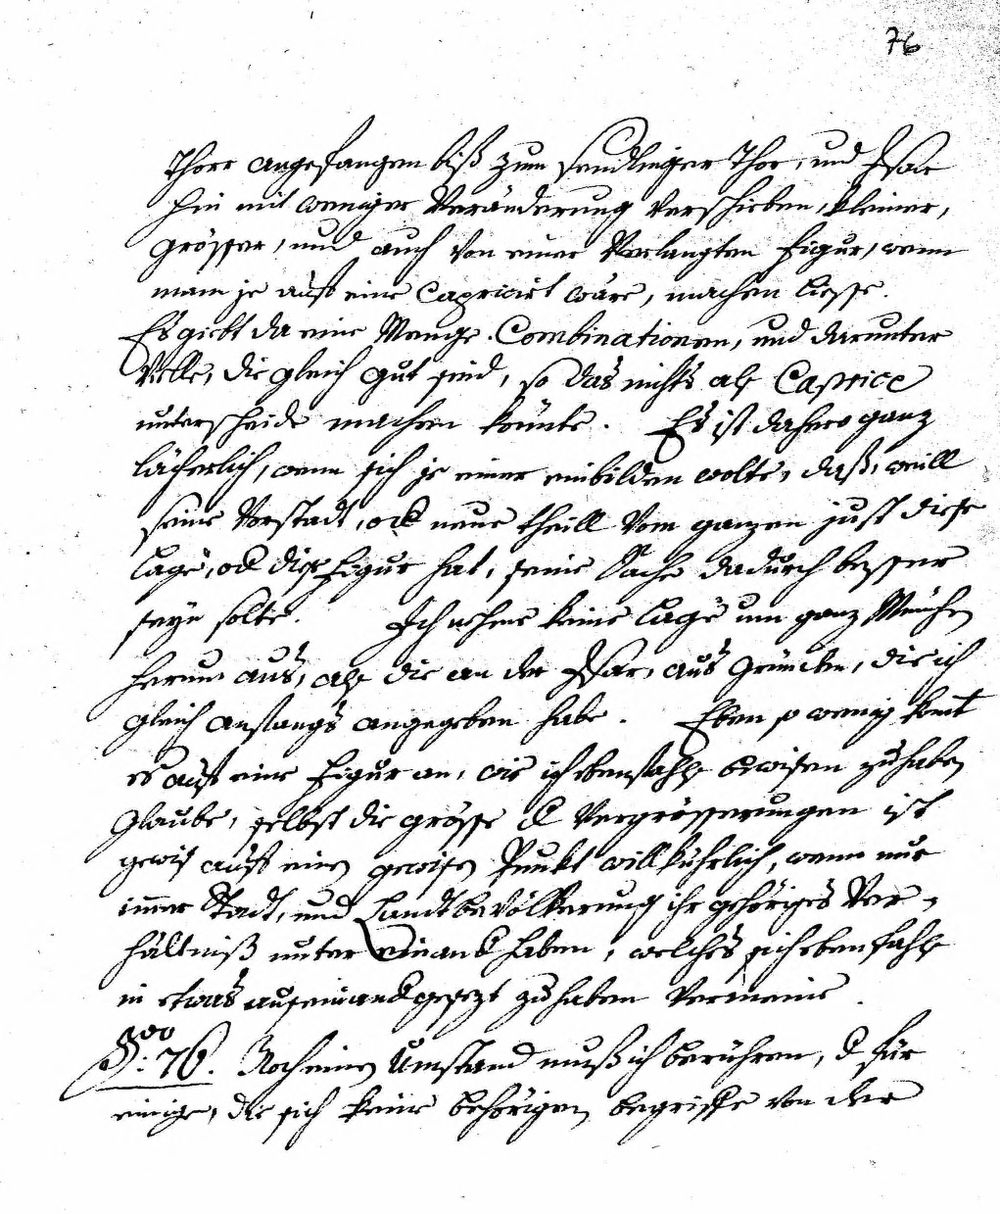 76
Thore angefangen biß zum Sendlinger Thor, und Isar
hin mit weniger Veränderung verschieben, kleiner,
grösser, und auch von einer verlangten Figur, wenn
man je auf eine Capriciert wäre, machen liesse.
Es giebt da eine Menge Combinationen, und darunter
Vielle, die gleich gut sind, so das nichts als Caprice
unterschiede machen könnte. Es ist dahero ganz
lächerlich, wenn sich je einer einbilden wolte, daß, weill
seine Vorstadt, od neue theill vom ganzen just diese
Lage, od diese Figur hat, seine Sache dadurch besser
seyn solte. Ich nehme keine Lage um ganz München
herum aus, als die an der Isar, aus Gründen, die ich
gleich anfangs angegeben habe. Eben so wenig komt
es auf eine Figur an, wie ich ebenfahls bewisen zu haben
glaube, selbst die grösse d Vergrösserungen ist
gewis auf einen gewisen Punkt willkührlich, wenn nur
immer Stadt, und Landbevölkerung ihr gehöriges Ver-
hältniß unter einand haben, welches ich ebenfahls
in etwas auseinandgesezt zu haben vermeine.
§do. 76. Noch einen Umstand muß ich berühren, d für
einige, die sich keine behörigen begriffe von der